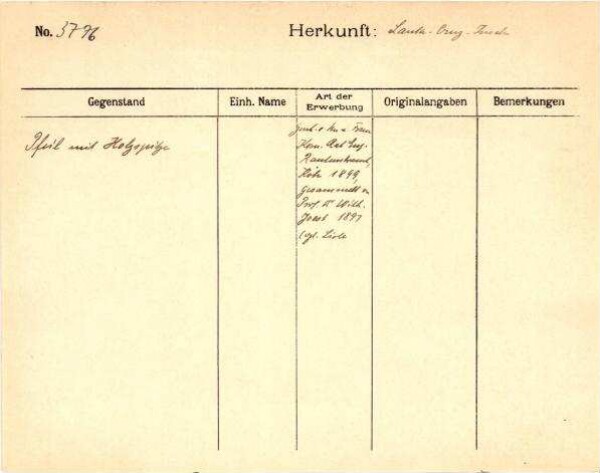 No. 3796 Herkunft: Santa-Cruz-Inseln
Gegenstand Einh. Name Art der Erwerbung Originalangaben Bemerkungen
Pfeil mit Holzspitze
Gesch. v. Frau
Kom. Rat Eug.
Rautenstrauch,
Köln 1899,
gesammelt v.
Prof. Dr Wilh.
Joest 1897